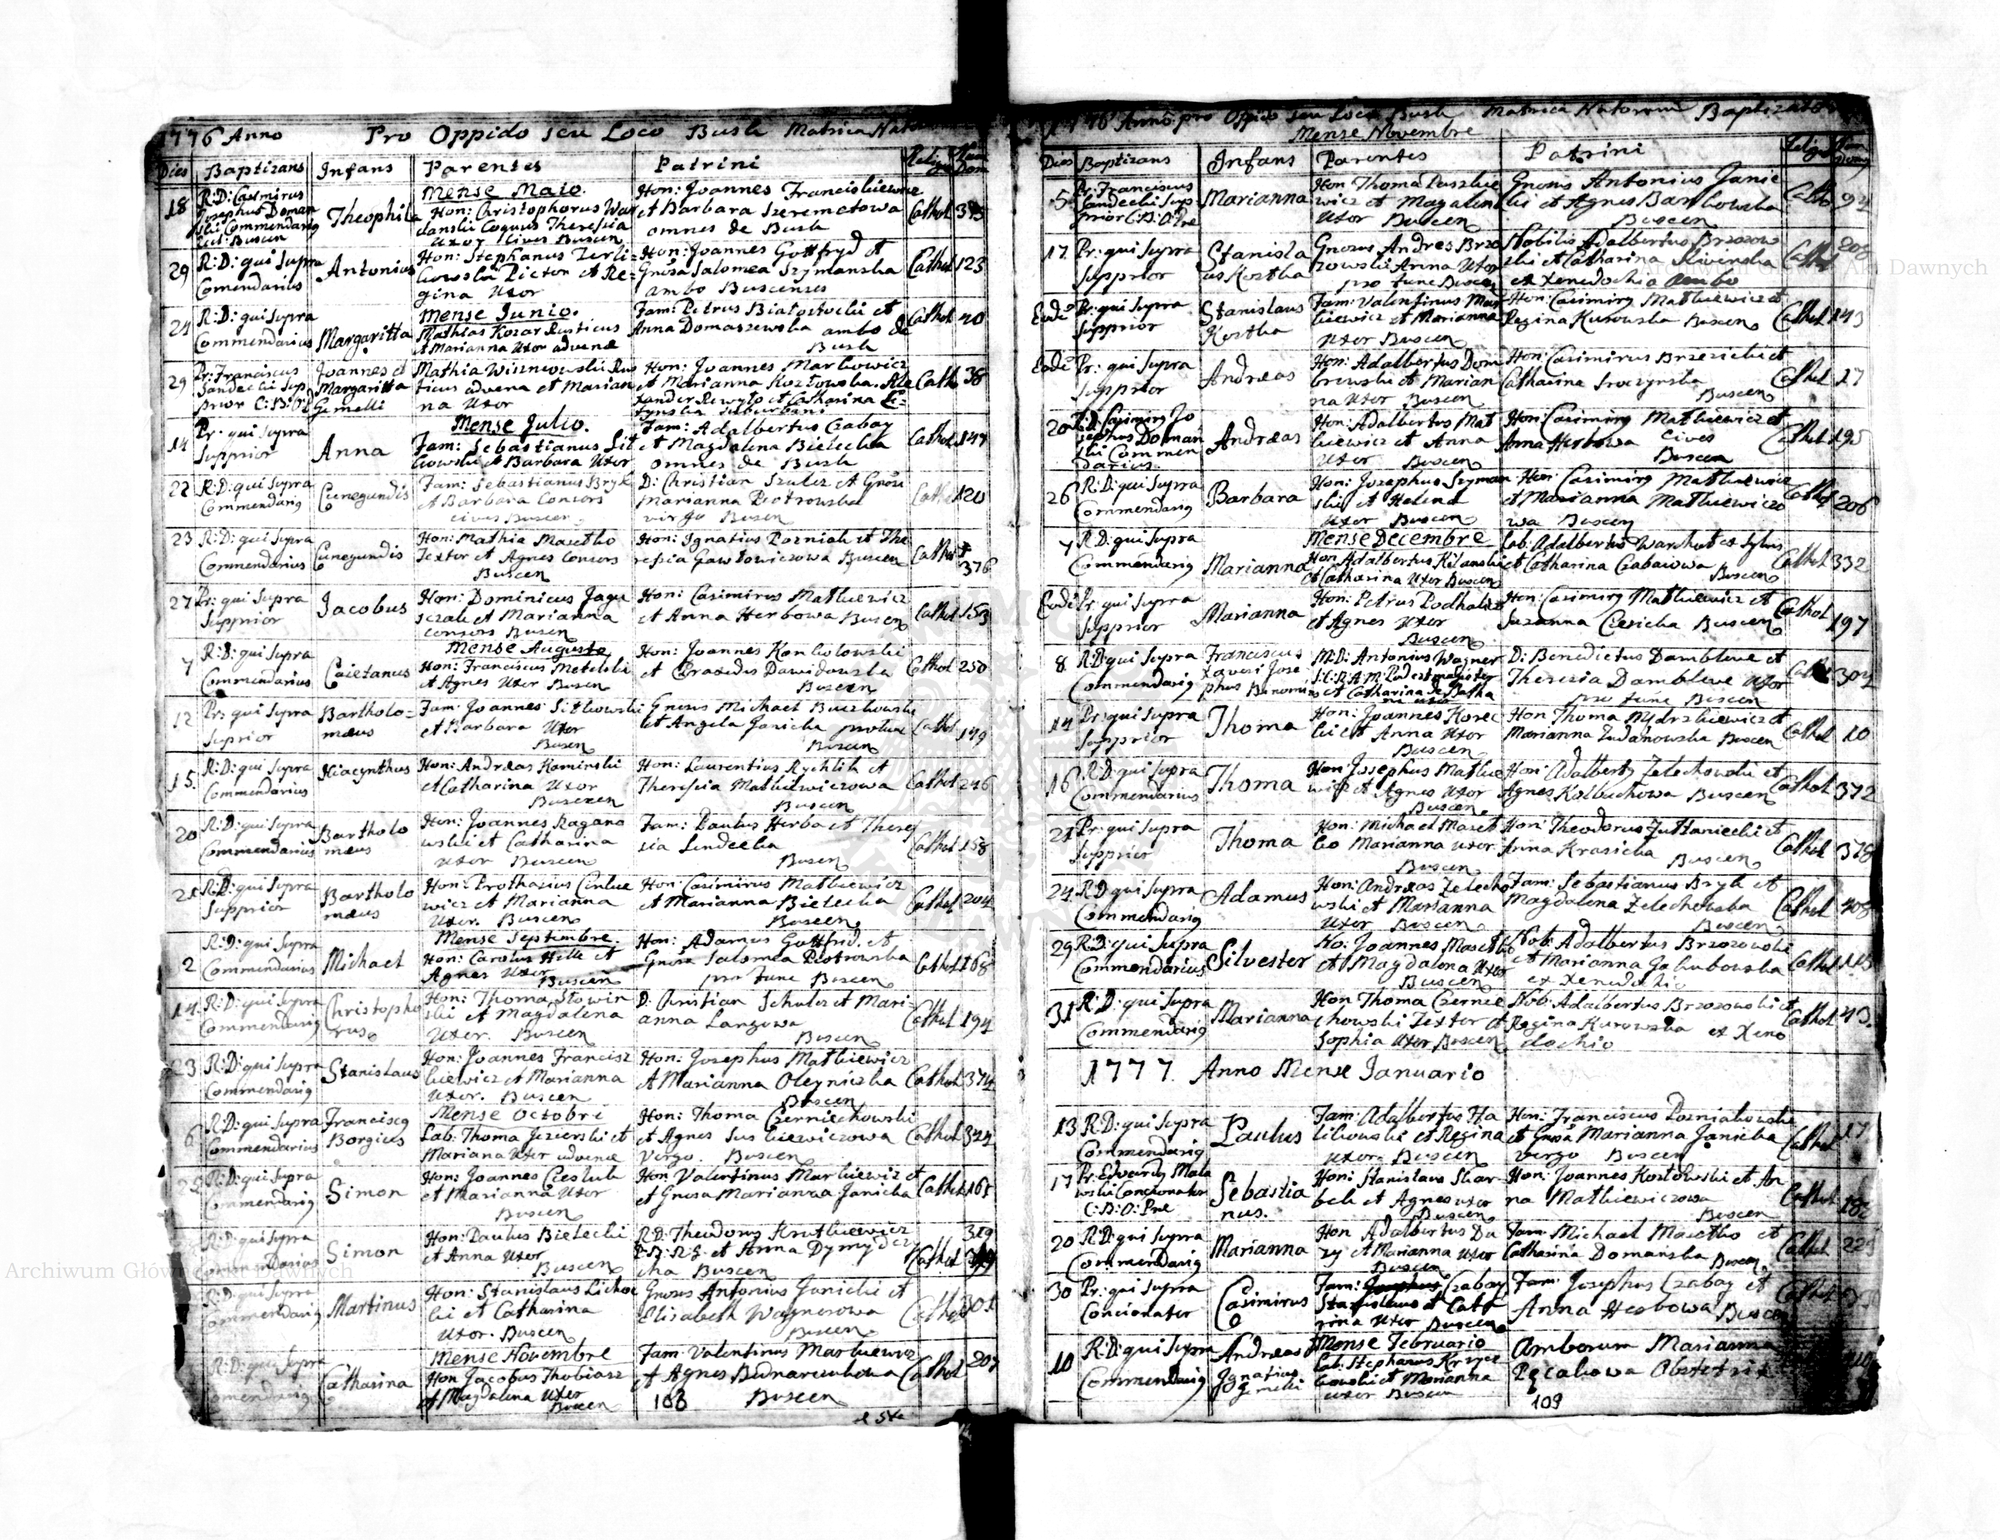 1776 Anno Pro Oppido seu Loco Busk Matrica
Dies Baptizans Infans Parentes Patrini
Mense Maio.
18 R:D: Casimirus Josephus Doman
ski Commendarius
Eccl: Buscen
Theophila
Hon: Christophorus War
danski Coquus Theresia
Uxor Cives Buscen
Hon: Joannes Franciskiewicz
et Barbara Szeremetowa
omnes de Busk
Cathol 375
29 R:D: qui supra
Comendarius
Antonius
Hon: Stephanus Terli
kowski Pictor et Re
gina Uxor
Hon: Joannes Gottfryd et
Gnosa Salomea Szymanska
ambo Buscenses
Cathol 123
Mense Junio.
21 R:D: qui supra
Commendarius
Margaritta
Mathias Kozar Rusticus
et Marianna Uxor advenæ
Fam: Petrus Bialostocki et
Anna Domaszewska ambo de
Busk
Cathol 40
29 Pr: Franciscus
Sandecki Sup
prior C:B:O:P
Joannes et
Margaritta
Gemelli
Mathia Wisznowski Rus
ticus advena et Marian
na Uxor
Hon: Joannes Markowicz
et Marianna Kozlowska. Ale
xander Rewyto et Catharina
suburbani
Cath 38
Mense Julio.
14 Pr: qui supra
Supprior
Anna
Fam: Sebastianus Sit
kowski et Barbara Uxor
Fam: Adalbertus Czabay
et Magdalena Bielecka
omnes de Busk
Cathol 147
22 R:D: qui supra
Commendarig
Cunegundis
Fam: Sebastianus Bryk
et Barbara Consors
cives Buscen
D: Christian Szulcz et Gnosa
Marianna Piotrowska
virgo Buscen
Cathol 120
23 R:D: qui supra
Commendarius
Cunegundis
Hon: Mathia Masetko
Textor et Agnes Consors
Buscen
Hon: Ignatius Pozniak et The
resia Gawlowiczowa Buscen
Cathol 376
27 Pr: qui supra
Supprior
Jacobus
Hon: Dominicus Jagu
sczak et Marianna
consors Buscen
Hon: Casimirus Matkiewicz
et Anna Herbowa Buscen
Cathol 153
Mense Augusto
7 R:D: qui supra
Commendarius
Caietanus
Hon: Franciscus Metelski
et Agnes Uxor Buscen
Hon: Joannes Konkolowski
et Praxedis Dawidowska
Buscen
Cathol 250
12 Pr: qui supra
Suprior
Bartholo=
mæus
Fam: Joannes Sitkowski
et Barbara Uxor
Buscen
Gnosus Michael Buczkowski
et Angela Janicka
Buscen
Cathol 149
15. R:D: qui supra
Commendarius
Hiacynthus
Hon: Andreas Kaminski
et Catharina Uxor
Buscen
Hon: Laurentius Rychlik et
Theresia Matkiewiczowa
Buscen
Cathol 246
20 R:D: qui supra
Commendarius
Bartholo
mæus
Hon: Joannes Ragano
wski et Catharina
uxor Buscen
Fam: Paulus Herba et There
sia Sendecka
Buscen
Cathol 158
21 R:D: qui supra
Supprior
Bartholo
mæus
Hon: Prothasius Cinkie
wicz et Marianna
Uxor. Buscen
Hon: Casimirus Matkiewicz
et Marianna Bielecka
Buscen
Cathol 204
Mense Septembre.
2 R:D: qui supra
Commendarius
Michael
Hon: Carolus Hille et
Agnes Uxor
Buscen
Hon: Adamus Gottfrid. et
Gnosa Salomea Piotrowska
pro tunc Buscen
Cathol 168
14. R:D: qui supra
Commendarig
Christopho
rus
Hon: Thoma Slowin
ski et Magdalena
Uxor. Buscen
D: Christian Schulcz et Mari=
anna Langowa
Buscen
Cathol 194
23 R:D: qui supra
Commendarig
Stanislaus
Hon: Joannes Francisz
kiewicz et Marianna
Uxor. Buscen
Hon: Josephus Matkiewicz
et Marianna Oleyniczka
Buscen
Cathol 374
Mense Octobri
6 R:D: qui supra
Commendarius
Franciscg
Borgias
Lab: Thoma Jezierski et
Mariana Uxor advenæ
Hon: Thoma Czerniechowski
et Agnes Suskiewiczowa
Virgo. Buscen
Cathol 324
R:D: qui supra
Commendarig
Simon
Hon: Joannes Ciesluk
et Marianna Uxor
Buscen
Hon: Valentinus Markiewicz et
et Gnosa Marianna Janicka
Cathol 161
R:D: qui supra
Commendarius
Simon
Hon: Paulus Bielecki
et Anna Uxor
Buscen
R:D: Theodorus Krutkiewicz
et Anna Dymydecz
cka Buscen
Cathol 319
R:D: qui supra
Commendarig
Martinus
Hon: Stanislaus Lichoc
ki et Catharina
Uxor. Buscen
Gnosus Antonius Janicki et
Elisabeth Wagnerowa
Buscen
Cathol 301
Mense Novembre
R:D: qui supra
Comendarig
Catharina
Hon Jacobus Thobiasz
et Magdalena Uxor
Buscen
Fam: Valentinus Markiewicz
et Agnes Bednarczukowa
Buscen
Cathol 207
108
1776 Anno pro Oppido seu Loco Busk Matrica Natorum Baptizato
Mense Novembre
Dies Baptizans Infans Parentes Patrini
5 Pr: Franciscus
Sandecki Sup
prior C:B:O:Pre
Marianna
Hon Thoma Paszkie
wicz et Magalena
Uxor Buscen
Gnosus Antonius Janic
ki et Agnes Bankowska
Buscen
Cathol 94
17 Pr: qui supra
Supprior
Stanisla
us Kostka
Gnosus Andreas Brzo
zowski Anna Uxor
pro tunc Buscen
Nobilis Adalbertus Brzozow
ski et Catharina Slivenska
ex Xenodochio ambo
Cathol 208
Eade Pr: qui supra
Supprior
Stanislaus
Kostka
Fam: Valentinus Mar
kiewicz et Marianna
Uxor Buscen
Hon: Casimirg Matkiewicz et
Regina Kurowska Buscen
Cathol 143
Eade Pr: qui supra
Supprior
Andreas
Hon: Adalbertus Dom
browski et Marian
na Uxor Buscen
Hon: Casimirus Brzezicki et
Catharina Sroczynska
Buscen
Cathol 17
20 R:D: Casimirg Jo
sephus Doman
ski Commen
darius.
Andreas
Hon: Adalbertus Mat
kiewicz et Anna
Uxor Buscen
Hon: Casimirg Matkiewicz et
Anna Herbowa Cives
Buscen
Cathol 195
26 R:D: qui supra
Commendarig
Barbara
Hon: Josephus Szyman
ski et Helena
Uxor Buscen
Hon: Casimirg Matkiewicz
et Marianna Matkiewiczo
wa Buscen
Cathol 206
Mense Decembre
7 R:D: qui supra
Commendarig
Marianna
Hon Adalbertus Kilanski
et Catharina Uxor Buscen
Lab: Adalbertus Warchut et Sylus
et Catharina Czabaiowa
Buscen
Cathol 332
Eode Pr: qui supra
Supprior
Marianna
Hon: Petrus Podhalicz
et Agnes Uxor
Buscen
Hon: Casimirg Matkiewicz et
Suzanna Czesicka Buscen
Cathol 197
8 R:D: qui supra
Commendarig
Franciscus
Xaveri Jose
phus Binomius
M:D: Antonius Wagner
et Catharina
D: Benedictus Damblewe et
Theresia Damblewe Uxor
pro tunc Buscen
Cathol 304
14 Pr: qui supra
Supprior
Thoma
Hon: Joannes Korec
ki et Anna Uxor
Buscen
Hon Thoma Mydrzkiewicz et
Marianna Zudanowska Buscen
Cathol 10
16 R:D: qui supra
Commendarius
Thoma
Hon Josephus Matkie
wicz et Agnes Uxor
Buscen
Hon: Adalbertg Zelechowski et
Agnes Kolbuchowa Buscen
Cathol 372
21 Pr: qui supra
Supprior
Thoma
Hon: Michael Maset
ko Marianna Uxor
Buscen
Hon: Theodorus Juttaniecki et
Anna Krasicka Buscen
Cathol 378
24 R:D qui supra
Commendarig
Adamus
Hon: Andreas Zelecho
wski et Marianna
Uxor Buscen
Fam: Sebastianus Bryk et
Magdalena Zelechowska
Buscen
Cathol 408
29 R:D: qui supra
Commendarius
Silvester
Ho: Joannes Masetko
et Magdalena Uxor
Buscen
Nob: Adalbertus Brzozowski
et Marianna Jakubowska
ex Xenodochio
Cathol 113
31 R:D: qui supra
Commendarig
Marianna
Hon Thoma Czernie
chowski Textor et
Sophia Uxor Buscen
Nob: Adalbertus Brzozowski et
Regina Kurowska ex Xeno
dochio
Cathol 43.
1777. Anno Mense Januario
13 R:D: qui supra
Commendarig
Paulus
Fam: Adalbertus Ha
likowski et Regina
Uxor. Buscen
Hon: Franciscus Pozniakowski
et Gnosa Marianna Janicka
virgo Buscen
Cathol 17
17 Pr: Edvardg Mala
wski Concionator
C:B:O:Pre
Sebastia
nus.
Hon: Stanislaus Skar
bek et Agnes uxor
Buscen
Hon: Joannes Kozlowski et An
na Matkiewiczowa
Buscen
Cathol 182
20 R:D: qui supra
Commendarig
Marianna
Hon Adalbertus Du
zy et Marianna Uxor
Buscen
Fam: Michael Masetko et
Catharina Domanska Buscen
Cathol 223
30 Pr: qui supra
Concionator
Casimirus
Fam: Czabay
Stanislaus et Catha
rina Uxor Buscen
Fam: Josephus Czabay et
Anna Herbowa Buscen
Cathol
Mense Februario
10 R:D: qui supra
Commendarig
Andreas
Ignatius
Gemelli
Lab: Stephanus Krzycz
kowski et Marianna
uxor Buscen
Amborum Marianna
Pęcakowa Obstetrix
109
Archiwum Główne Akt Dawnych
Archiwum Główne Akt Dawnych